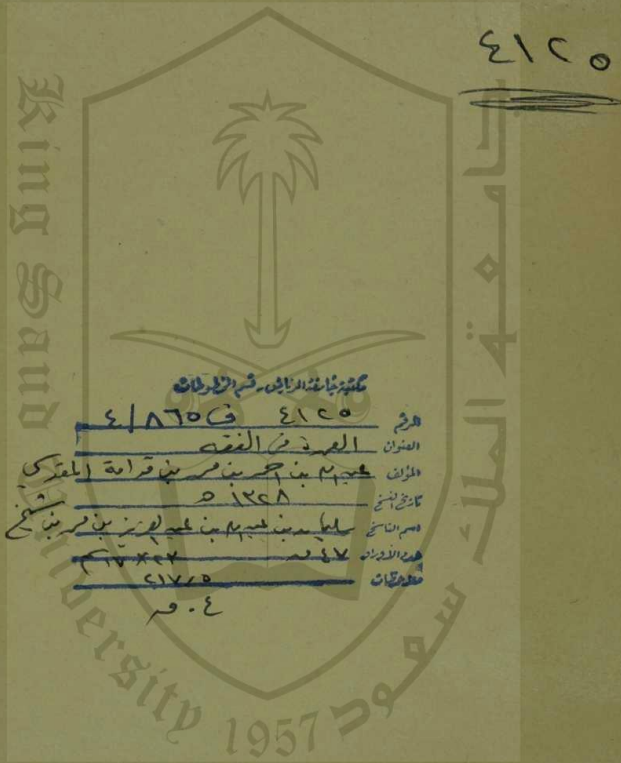 ٤١٢٥
جامعة الملك سعود
King Saud University 1957
مكتبة جامعة الرياض - قسم المخطوطات
الرقم ٤١٢٥ ف ٨٦٥/٤
العنوان العمدة في الفقه
المؤلف عبدالله بن احمد بن محمد بن قدامة المقدسي
تاريخ النسخ ١٣٢٨ هـ
اسم الناسخ سليمان بن عبدالله بن عبدالعزيز بن محمد بن شيخ
عدد الأوراق ٤٧ ق
ملاحظات ٢١٧/٥